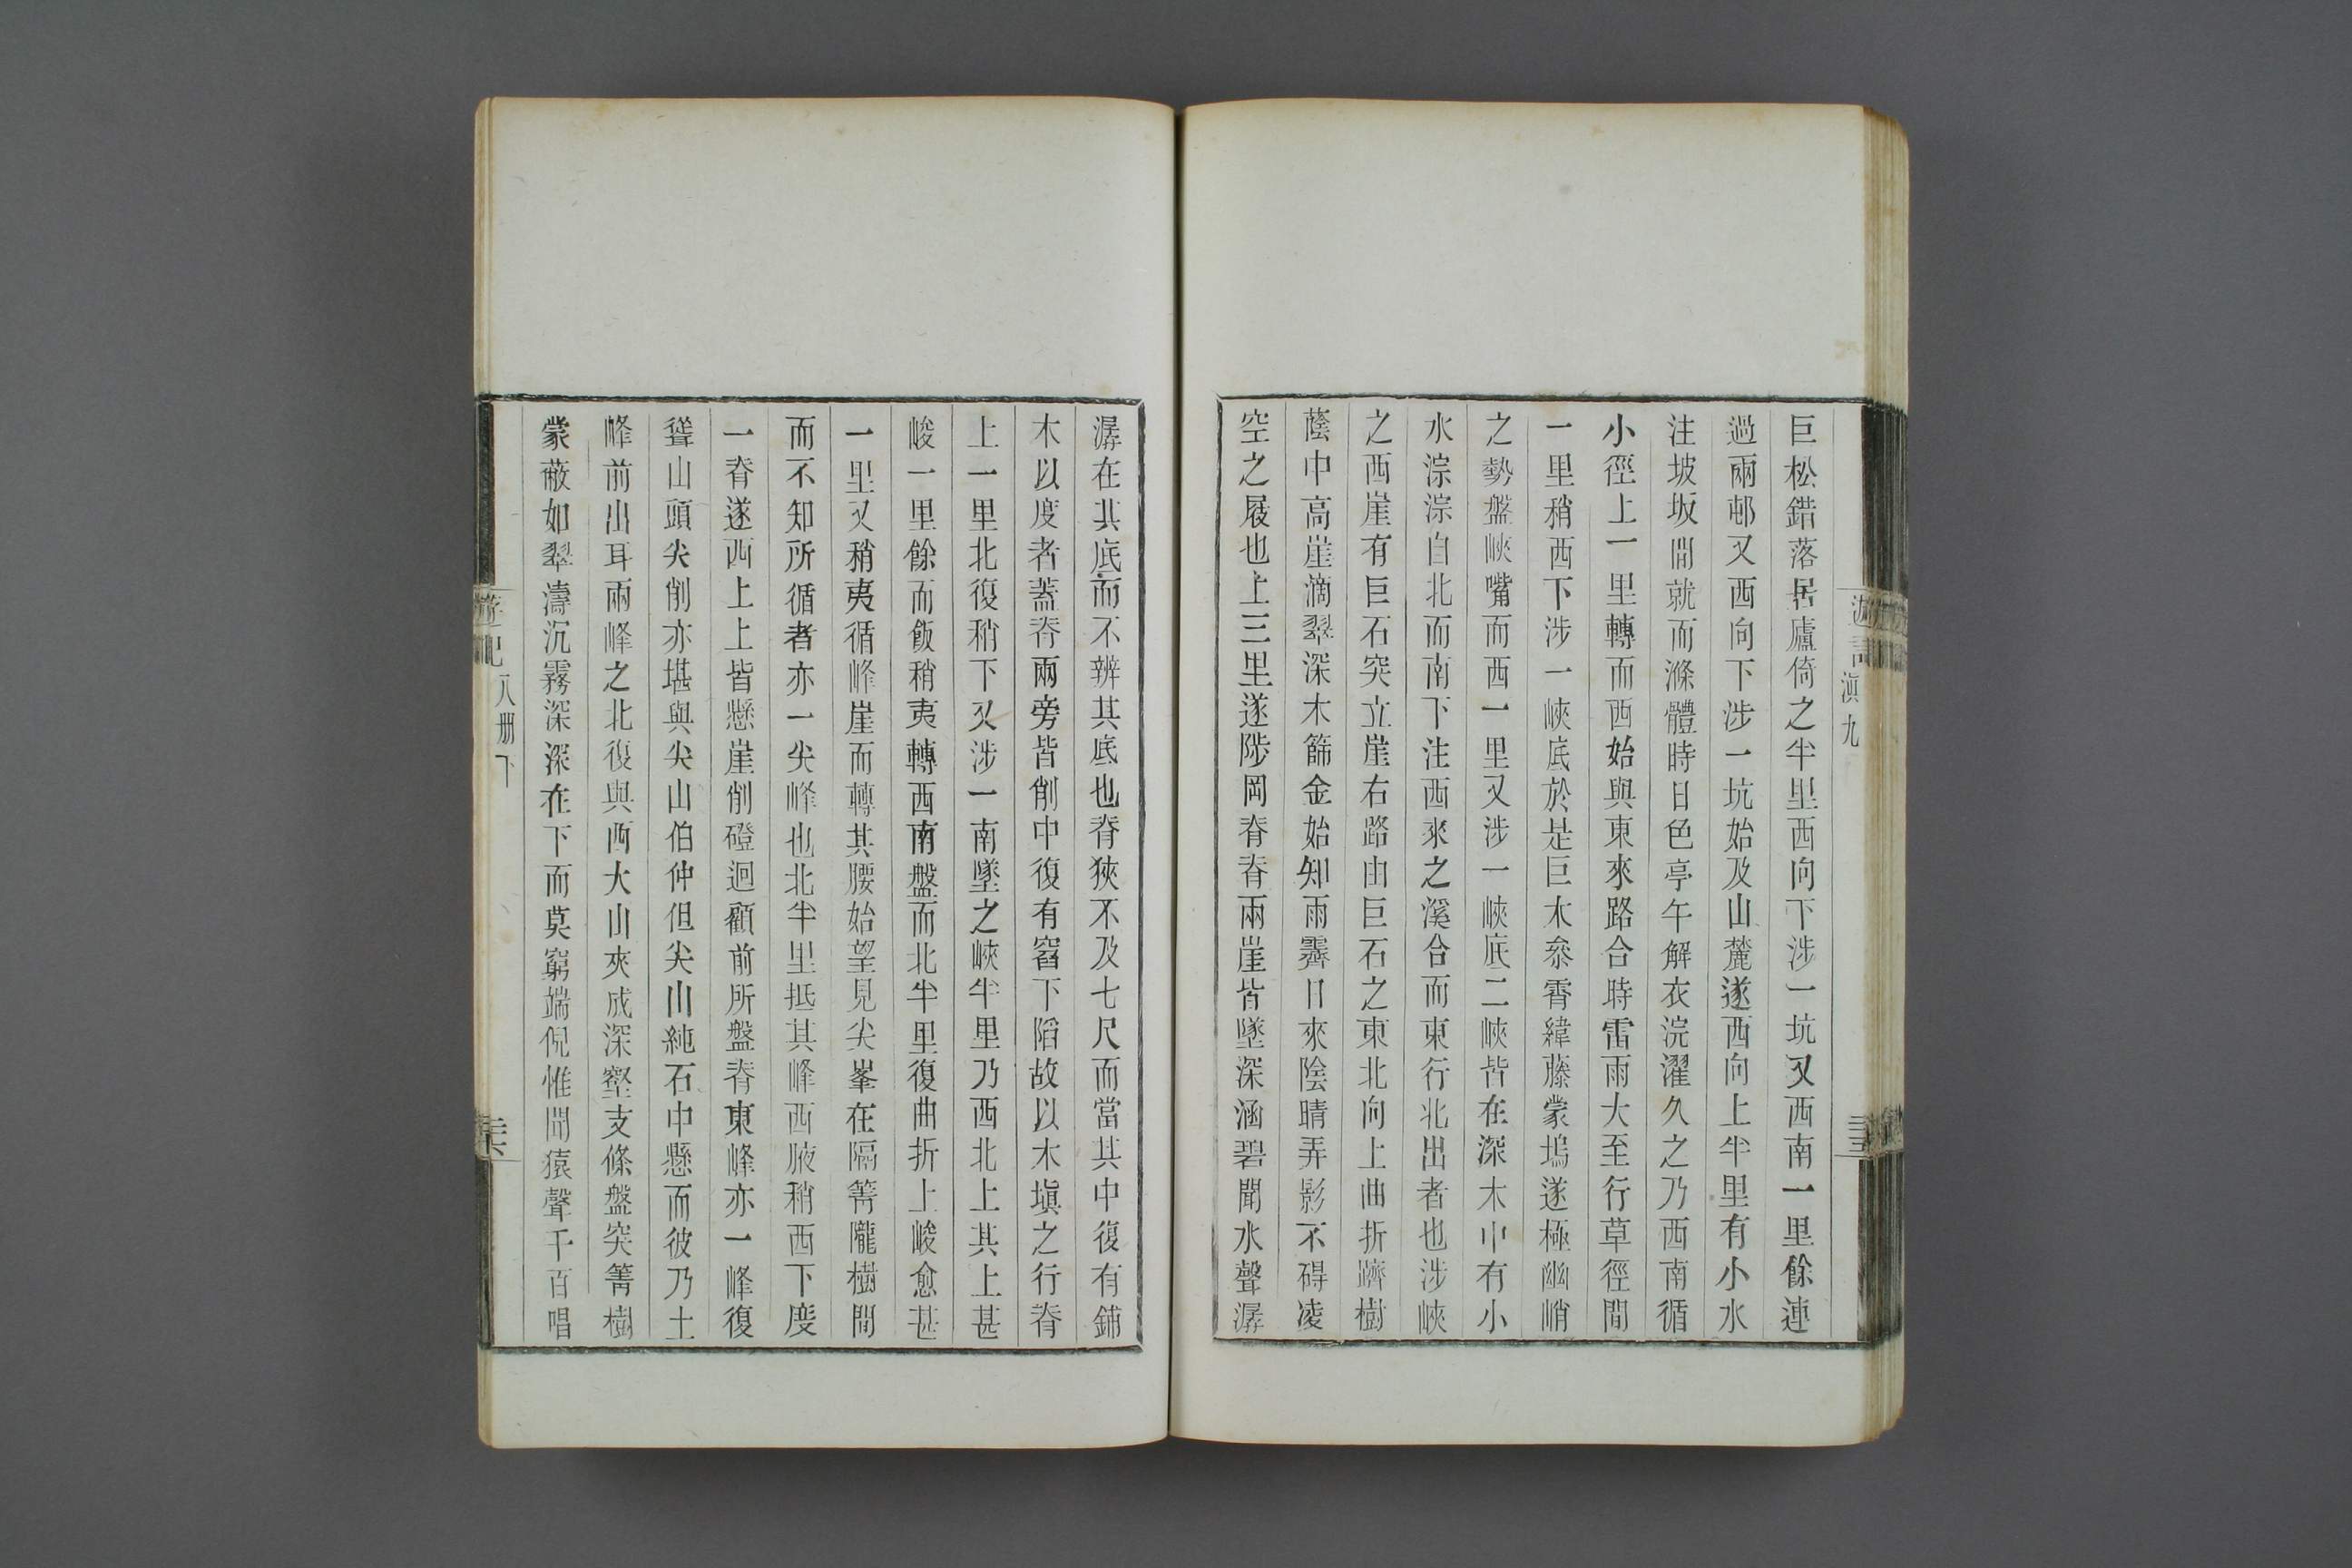 遊記 滇九 三十五
巨松錯落居廬倚之半里西向下涉一坑又西南一里餘連
過兩邨又西向下涉一坑始及山麓遂西向上半里有小水
注坡坂間就而滌體時日色亭午解衣浣濯久之乃西南循
小徑上一里轉而西始與東來路合時雷雨大至行草徑間
一里稍西下涉一峽底於是巨木叅霄緯藤蒙塢遂極幽峭
之勢盤峽嘴而西一里又涉一峽底二峽皆在深木中有小
水淙淙自北而南下注西來之溪合而東行北出者也涉峽
之西崖有巨石突立崖右路由巨石之東北向上曲折躋樹
蔭中高崖滴翠深木篩金始知雨霽日來陰晴弄影不碍凌
空之屐也上三里遂陟岡脊脊兩崖皆墜深涵碧聞水聲潺
潺在其底而不辨其底也脊狹不及七尺而當其中復有鋪
木以度者蓋脊兩旁皆削中復有窞下陷故以木塡之行脊
上一里北復稍下又涉一南墜之峽半里乃西北上其上甚
峻一里餘而飯稍夷轉西南盤而北半里復曲折上峻愈甚
一里又稍夷循峰崖而轉其腰始望見尖峯在隔箐隴樹間
而不知所循者亦一尖峰也北半里抵其峰西腋稍西下度
一脊遂西上上皆懸崖削磴迴顧前所盤脊東峰亦一峰復
聳山頭尖削亦堪與尖山伯仲但尖山純石中懸而彼乃土
峰前出耳兩峰之北復與西大山夾成深壑支條盤突箐樹
蒙蔽如翠濤沉霧深深在下而莫窮端倪惟聞猿聲千百唱
遊記 八册下 三十六